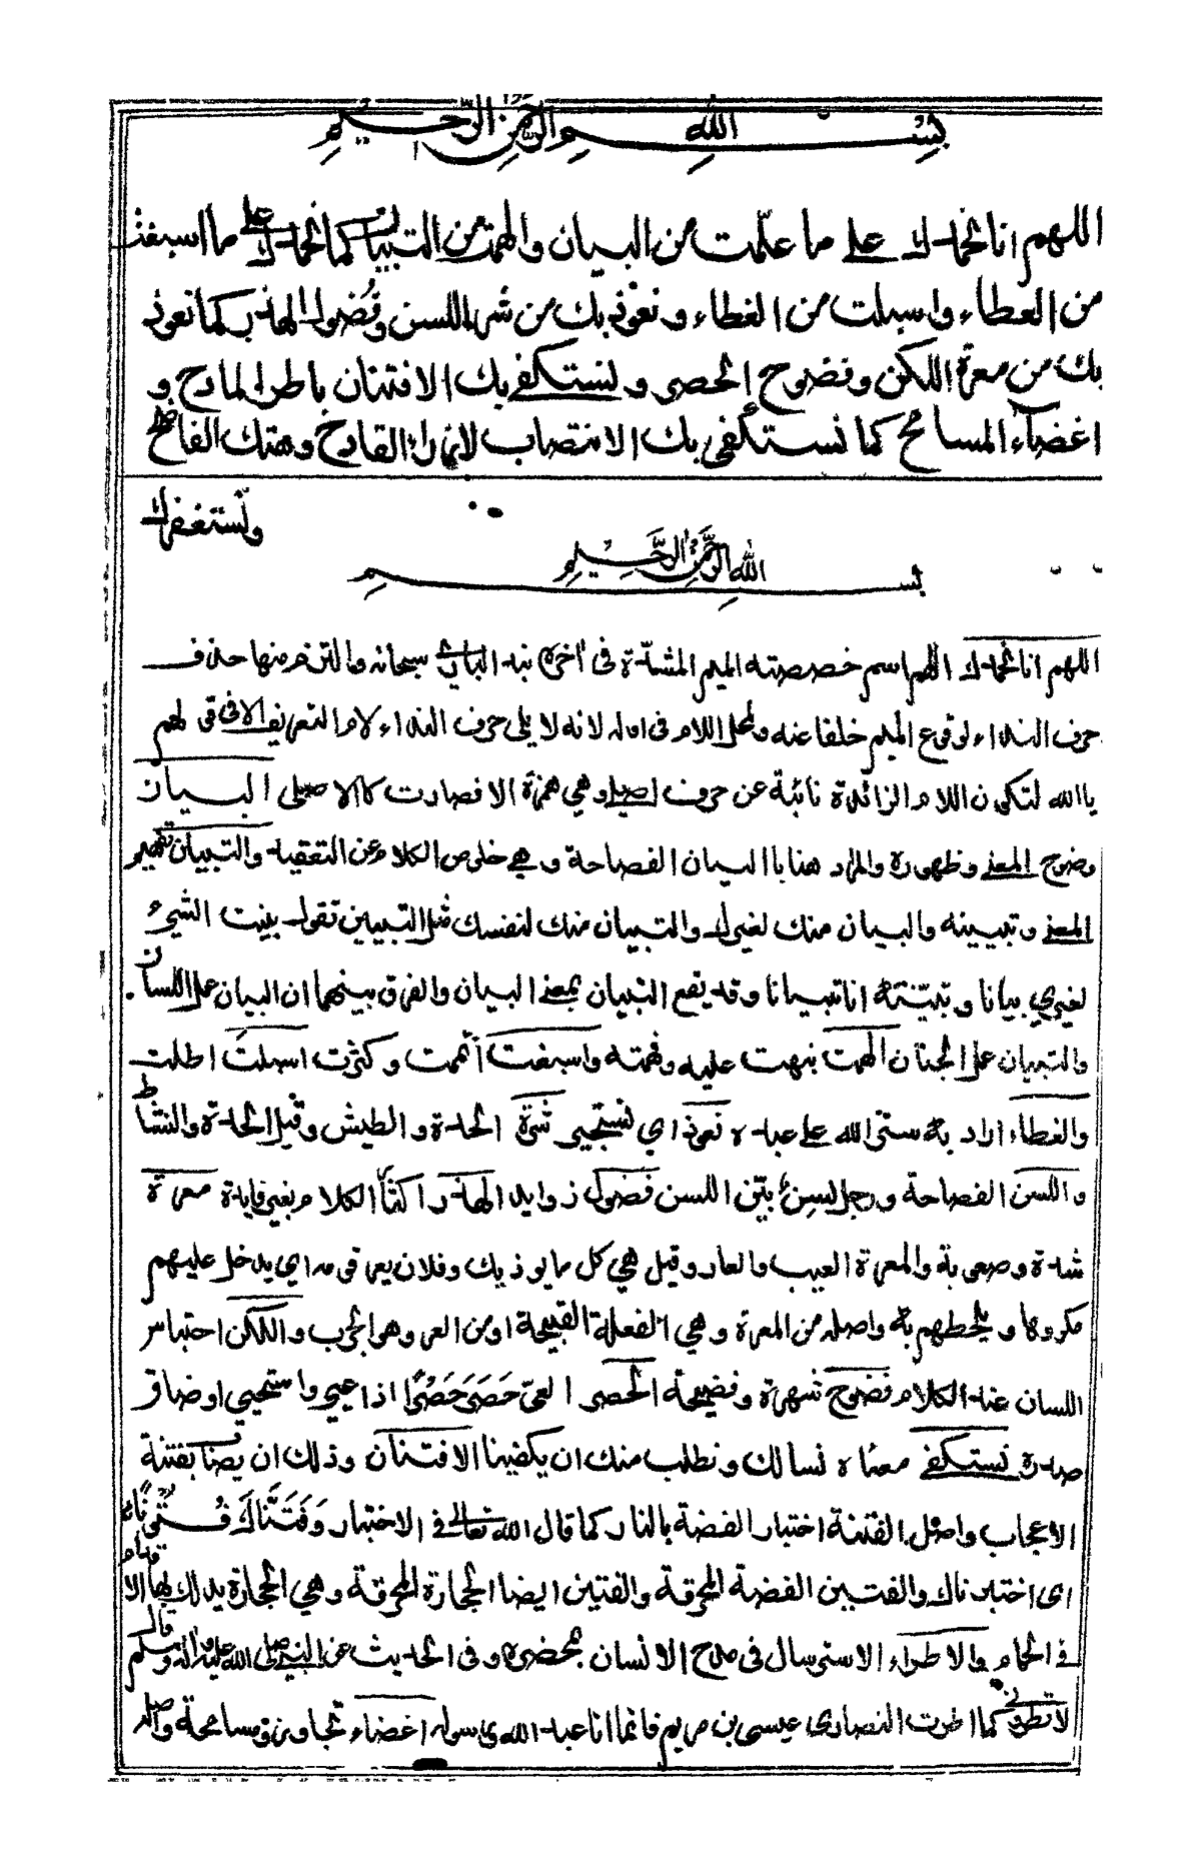 بسم الله الرحمن الرحيم
اللهم انا نحمدك على ما علمت من البيان والهمت من التبيان كما نحمدك على ما اسبغت
من العطاء واسبلت من الغطاء ونعوذ بك من شرة اللسن وفضول الهذر كما نعوذ
بك من معرة اللكن وفضوح الحصر ونستكفي بك الافتتان باطراء المادح و
اغضاء المسامح كما نستكفي بك الانتصاب لازراء القادح وهتك الفاضح
ونستغفرك
بسم الله الرحمن الرحيم
اللهم انا نحمدك اللهم اسم خصصته الميم المشددة في اخره بنداء الباري سبحانه والتزم منها حذف
حرف النداء لوقوع الميم خلفا عنه ودخل اللام في اوله لانه لا يلي حرف النداء لام التعريف الا في قولهم
يا الله لتكون اللام الزائدة نائبة عن حرف اصلي وهي همزة الا فصارت كالاصلي البيان
وضوح المعنى وظهوره والمراد هنا باالبيان الفصاحة وهي خلوص الكلام عن التعقيد والتبيان تفهيم
المعنى وتبيينه والبيان منك لغيرك والتبيان منك لنفسك مثل التبيين تقول بينت الشيء
لغيري بيانا وتبينته انا تبيانا وقد يقع التبيان بمعنى البيان والفرق بينهما ان البيان عمل اللسان
والتبيان عمل الجنان الهمت نبهت عليه وفهمته واسبغت اتممت وكثرت اسبلت اطلت
والغطاء اراد به ستر الله على عباده نعوذ اي نستجير شرة الحدة والطيش وقيل الحدة والنشاط
واللسن الفصاحة ورجل لسن بين اللسن فضول زوايد الهذر اكثار الكلام بغير فايدة معرة
شدة وصعوبة والمعرة العيب والعار وقيل هي كل ما يوذيك وفلان يعر قومه اي يدخل عليهم
مكروها ويلحطهم به واصله من المعرة وهي الفعلة القبيحة او من العر وهو الجرب واللكن احتباس
اللسان عند الكلام فضوح شهرة وفضيحة الحصر العي حَصِرَ حَصَرًا اذا عيي واستحيي او ضاق
صدره نستكفي معناه نسالك ونطلب منك ان يكفينا الافتتان وذلك ان يصابفتنة
الاعجاب واصل الفتنة اختبار الفضة بالنار كما قال الله تعالى في الاختبار وَفَتَنَّاكَ فُتُونًا
اى اختبرناك والفتين الفضة المحرقة والفتين ايضا الحجارة المحرقة وهي الحجارة يدلك بها الاقدام
في الحمام والاطراء الاسترسال في مدح الانسان بمحضره وفي الحديث عن النبي صلى الله عليه واله وسلم قال
لا تطروني كما اطرت النصارى عيسى بن مريم فانما انا عبد الله ورسوله اغضاء تجاوز ومسامحة واصله